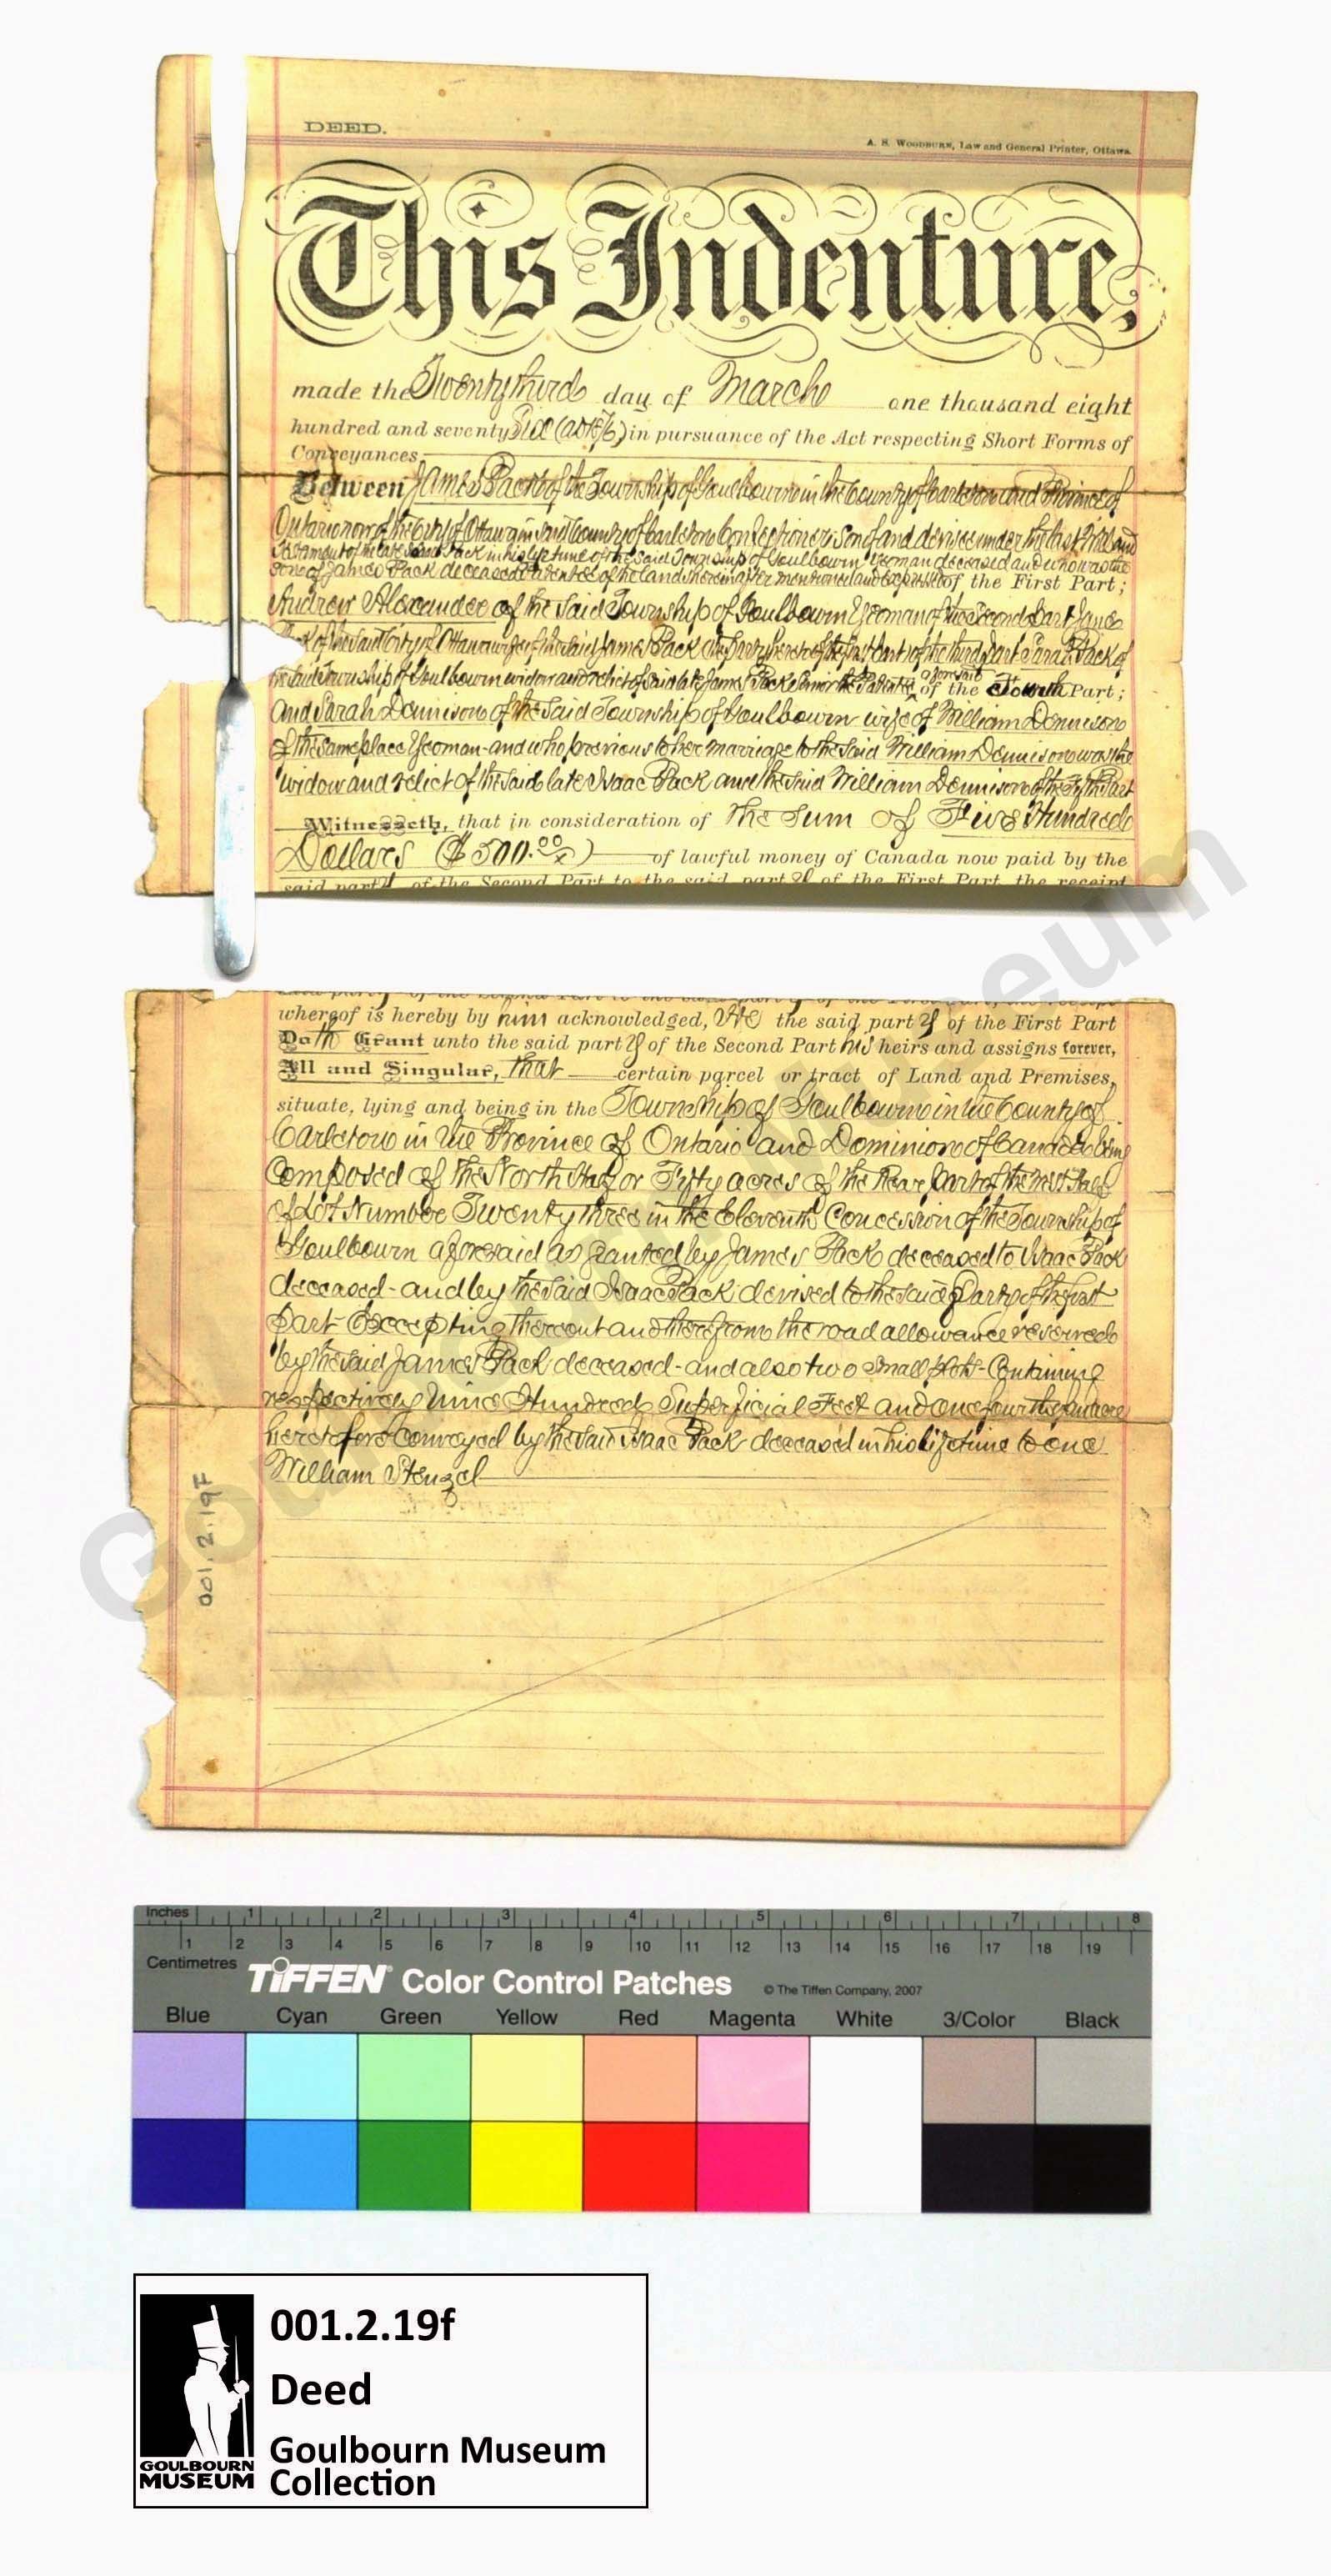 DEED.
A. S. WOODBURN, Law and General Printer, Ottawa.
This Indenture,
made the Twenty third day of March one thousand eight
hundred and seventy Six (AD 1876) in pursuance of the Act respecting Short Forms of
Conveyances,
Between James Pack of the Township of Goulbourn in the County of Carleton and Province of
Ontario now of the City of Ottawa in said County of Carleton Confectioner son of and devisee under the last Will and
Testament of the late Isaac Pack in his life time of the said Township of Goulbourn Yeoman deceased and who was the
son of James Pack deceased Patentee of the land hereinafter mentioned and of the First Part;
Andrew Alexander of the said Township of Goulbourn Yeoman of the Second Part Jane
Pack of the said City of Ottawa wife of the said James Pack the party hereto of the first part of the third part Sarah Pack of
the said Township of Goulbourn widow and relict of said late James Pack Senior the Patentee aforesaid of the Fourth Part;
and Sarah Dennison of the said Township of Goulbourn wife of William Dennison
of the same place Yeoman - and who previous to her marriage to the said William Dennison was the
widow and relict of the said late Isaac Pack and the said William Dennison of the Fifth Part
Witnesseth, that in consideration of The Sum of Five Hundred
Dollars ($500.00) of lawful money of Canada now paid by the
said party of the Second Part to the said party of the First Part, the receipt
whereof is hereby by him acknowledged, He the said party of the First Part
Doth Grant unto the said party of the Second Part his heirs and assigns forever,
All and Singular, that certain parcel or tract of Land and Premises,
situate, lying and being in the Township of Goulbourn in the County of
Carleton in the Province of Ontario and Dominion of Canada being
Composed of the North Half or Fifty acres of the Rear part of the West Half
of Lot Number Twenty three in the Eleventh Concession of the Township of
Goulbourn aforesaid as granted by James Pack deceased to Isaac Pack
deceased - and by the said Isaac Pack devised to the said Party of the first
part Excepting thereout and therefrom the road allowance reserved
by the said James Pack deceased - and also two small plots Containing
respectively Nine Hundred Superficial Feet and one fourth of an acre
heretofore conveyed by the said Isaac Pack deceased in his lifetime to one
William Stenzel
001.2.19F
Goulbourn Museum
Inches 1 2 3 4 5 6 7 8
1 2 3 4 5 6 7 8 9 10 11 12 13 14 15 16 17 18 19
Centimetres
TIFFEN Color Control Patches © The Tiffen Company, 2007
Blue Cyan Green Yellow Red Magenta White 3/Color Black
001.2.19f
Deed
Goulbourn Museum
Collection
GOULBOURN
MUSEUM